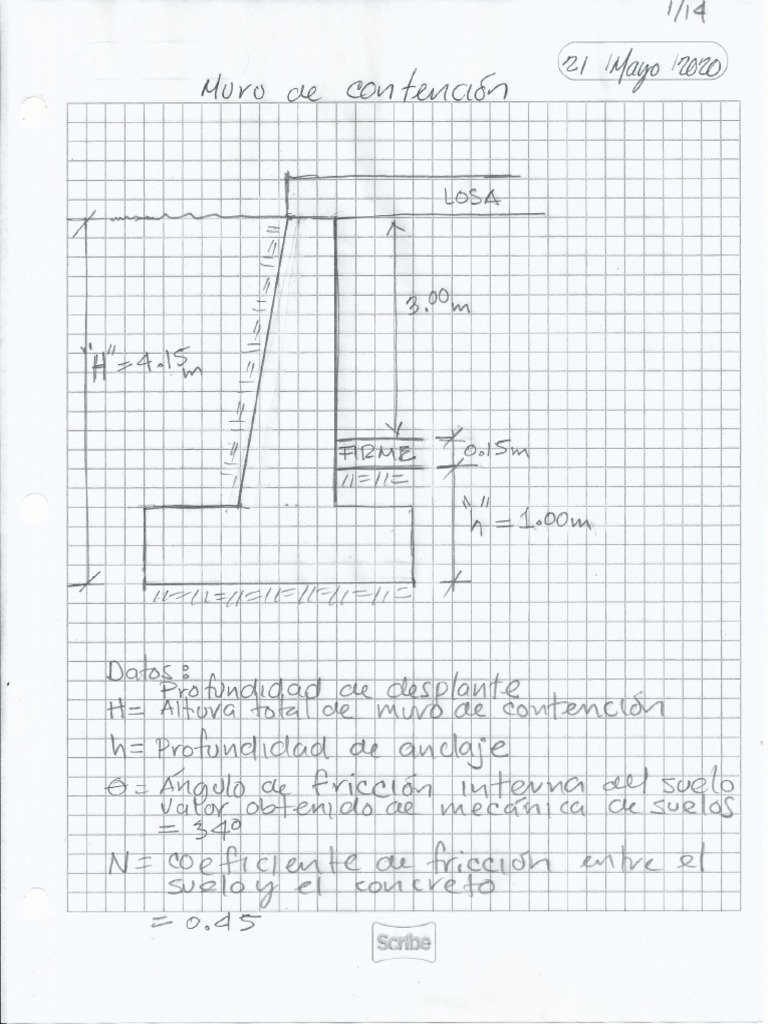 1/14
21 Mayo 2020
Muro de contención
LOSA
3.00m
"H"=4.15m
FIRME
0.15m
"h"=1.00m
Datos:
Profundidad de desplante
H= Altura total de muro de contención
h= Profundidad de anclaje
θ= Ángulo de fricción interna del suelo
valor obtenido de mecánica de suelos
= 34°
N= coeficiente de fricción entre el
suelo y el concreto
= 0.45
Scribe